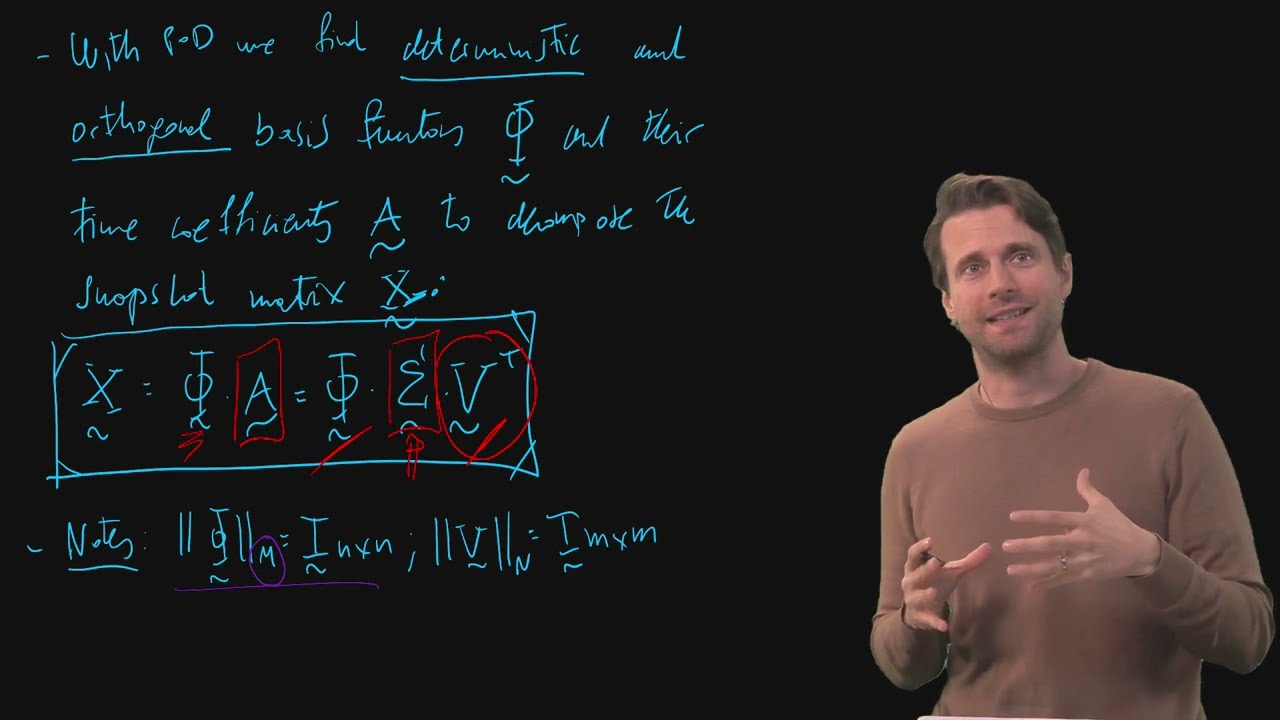 - With POD we find deterministic and
orthogonal basis functions Φ and their
time coefficients A to decompose the
snapshot matrix X:
X = Φ · A = Φ · Σ · V^T
- Notes: ||Φ||_M = I n×n ; ||V||_N = I m×m